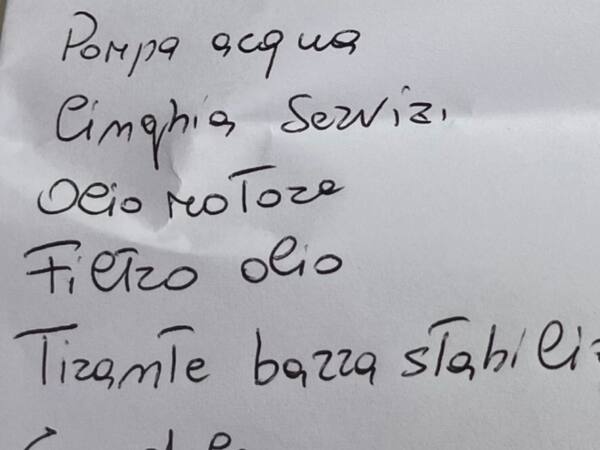 Pompa acqua
Cinghia Servizi
Olio motore
Filtro olio
Tirante barra stabiliz